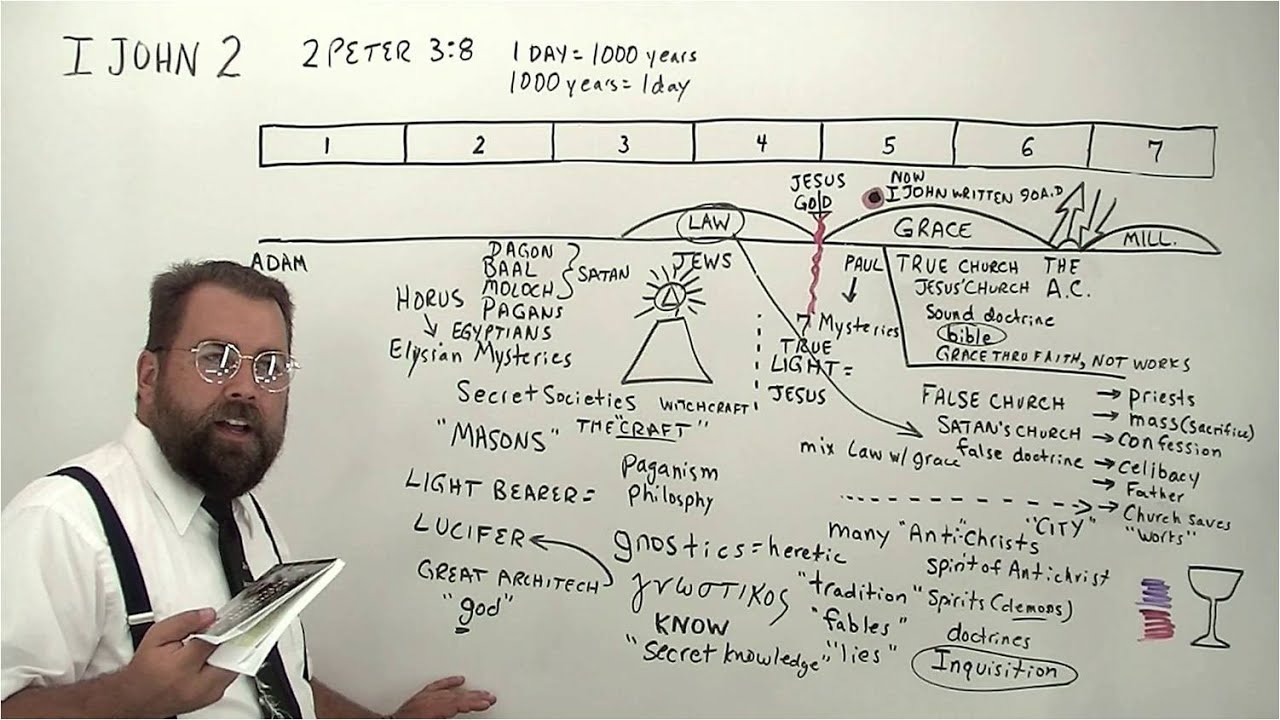 I JOHN 2
2 PETER 3:8
1 DAY = 1000 years
1000 years = 1day
1 2 3 4 5 6 7
JESUS
GOD
NOW
I JOHN WRITTEN 90A.D
LAW
GRACE
MILL.
ADAM
DAGON
BAAL
MOLOCH
SATAN
HORUS
PAGANS
EGYPTIANS
Elysian Mysteries
JEWS
PAUL
7 Mysteries
TRUE
LIGHT =
JESUS
TRUE CHURCH
JESUS' CHURCH
THE
A.C.
Sound doctrine
bible
GRACE THRU FAITH, NOT WORKS
Secret Societies
WITCHCRAFT
"MASONS"
THE "CRAFT"
FALSE CHURCH
SATAN'S CHURCH
mix Law w/ grace
false doctrine
→ priests
→ mass (sacrifice)
→ confession
→ celibacy
→ Father
→ Church saves
"works"
LIGHT BEARER =
Paganism
Philosphy
LUCIFER
GREAT ARCHITECH
"god"
gnostics = heretic
γνωστικος
KNOW
"Secret knowledge"
many "Anti"christs
"CITY"
spirit of Antichrist
"tradition"
Spirits (demons)
"fables"
doctrines
"lies"
Inquisition